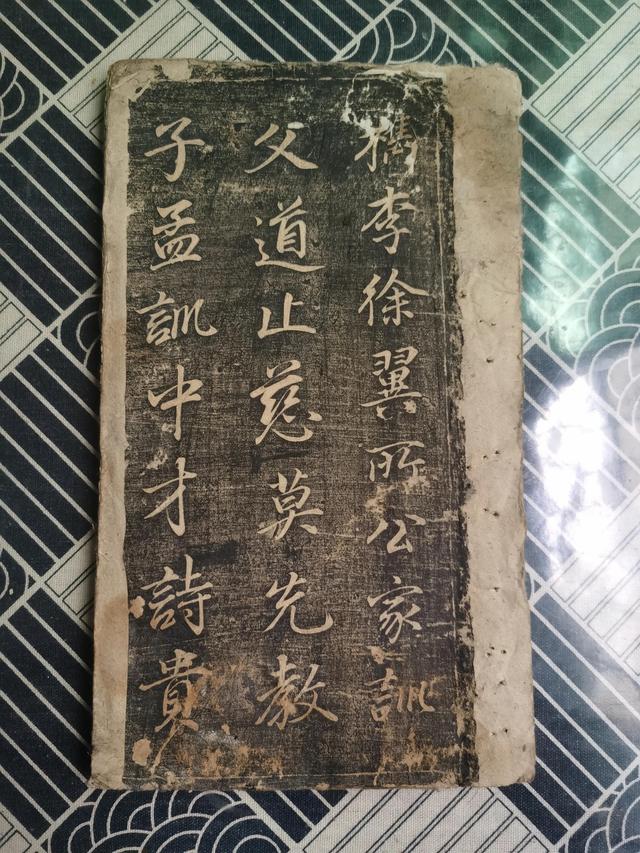 檇李徐翼所公家訓
父道止慈莫先教
子孟訓中才詩貴